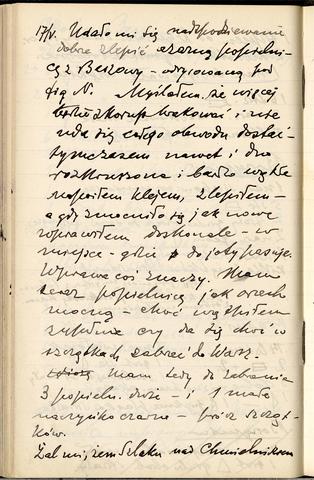 17/V. Udało mi się nadspodziewanie
dobrze zlepić czarną popielni-
cę z Beszowy – odrysowaną pod
fig N. Myślałem, że więcej
będzie skorup brakować i nie
uda się całego obwodu dostać –
tymczasem nawet i dno
rozkruszone i bardzo wątłe
napoiłem klejem, zlepiłem –
a gdy zmocniło się jak nowe
wprawiłem doskonale – w
miejsce – gdzie do joty pasuje.
Wprawa coś znaczy. Mam
teraz popielnicę jak orzech
mocną – choć wątpiłem
zupełnie czy da się choć w
szczątkach zabrać do Warsz.
mam tedy do zabrania
3 popieln. duże – i 1 małe
naczyńko czarne – prócz szcząt-
ków.
Żal mi, żem Szlaku nad Chmielnikiem